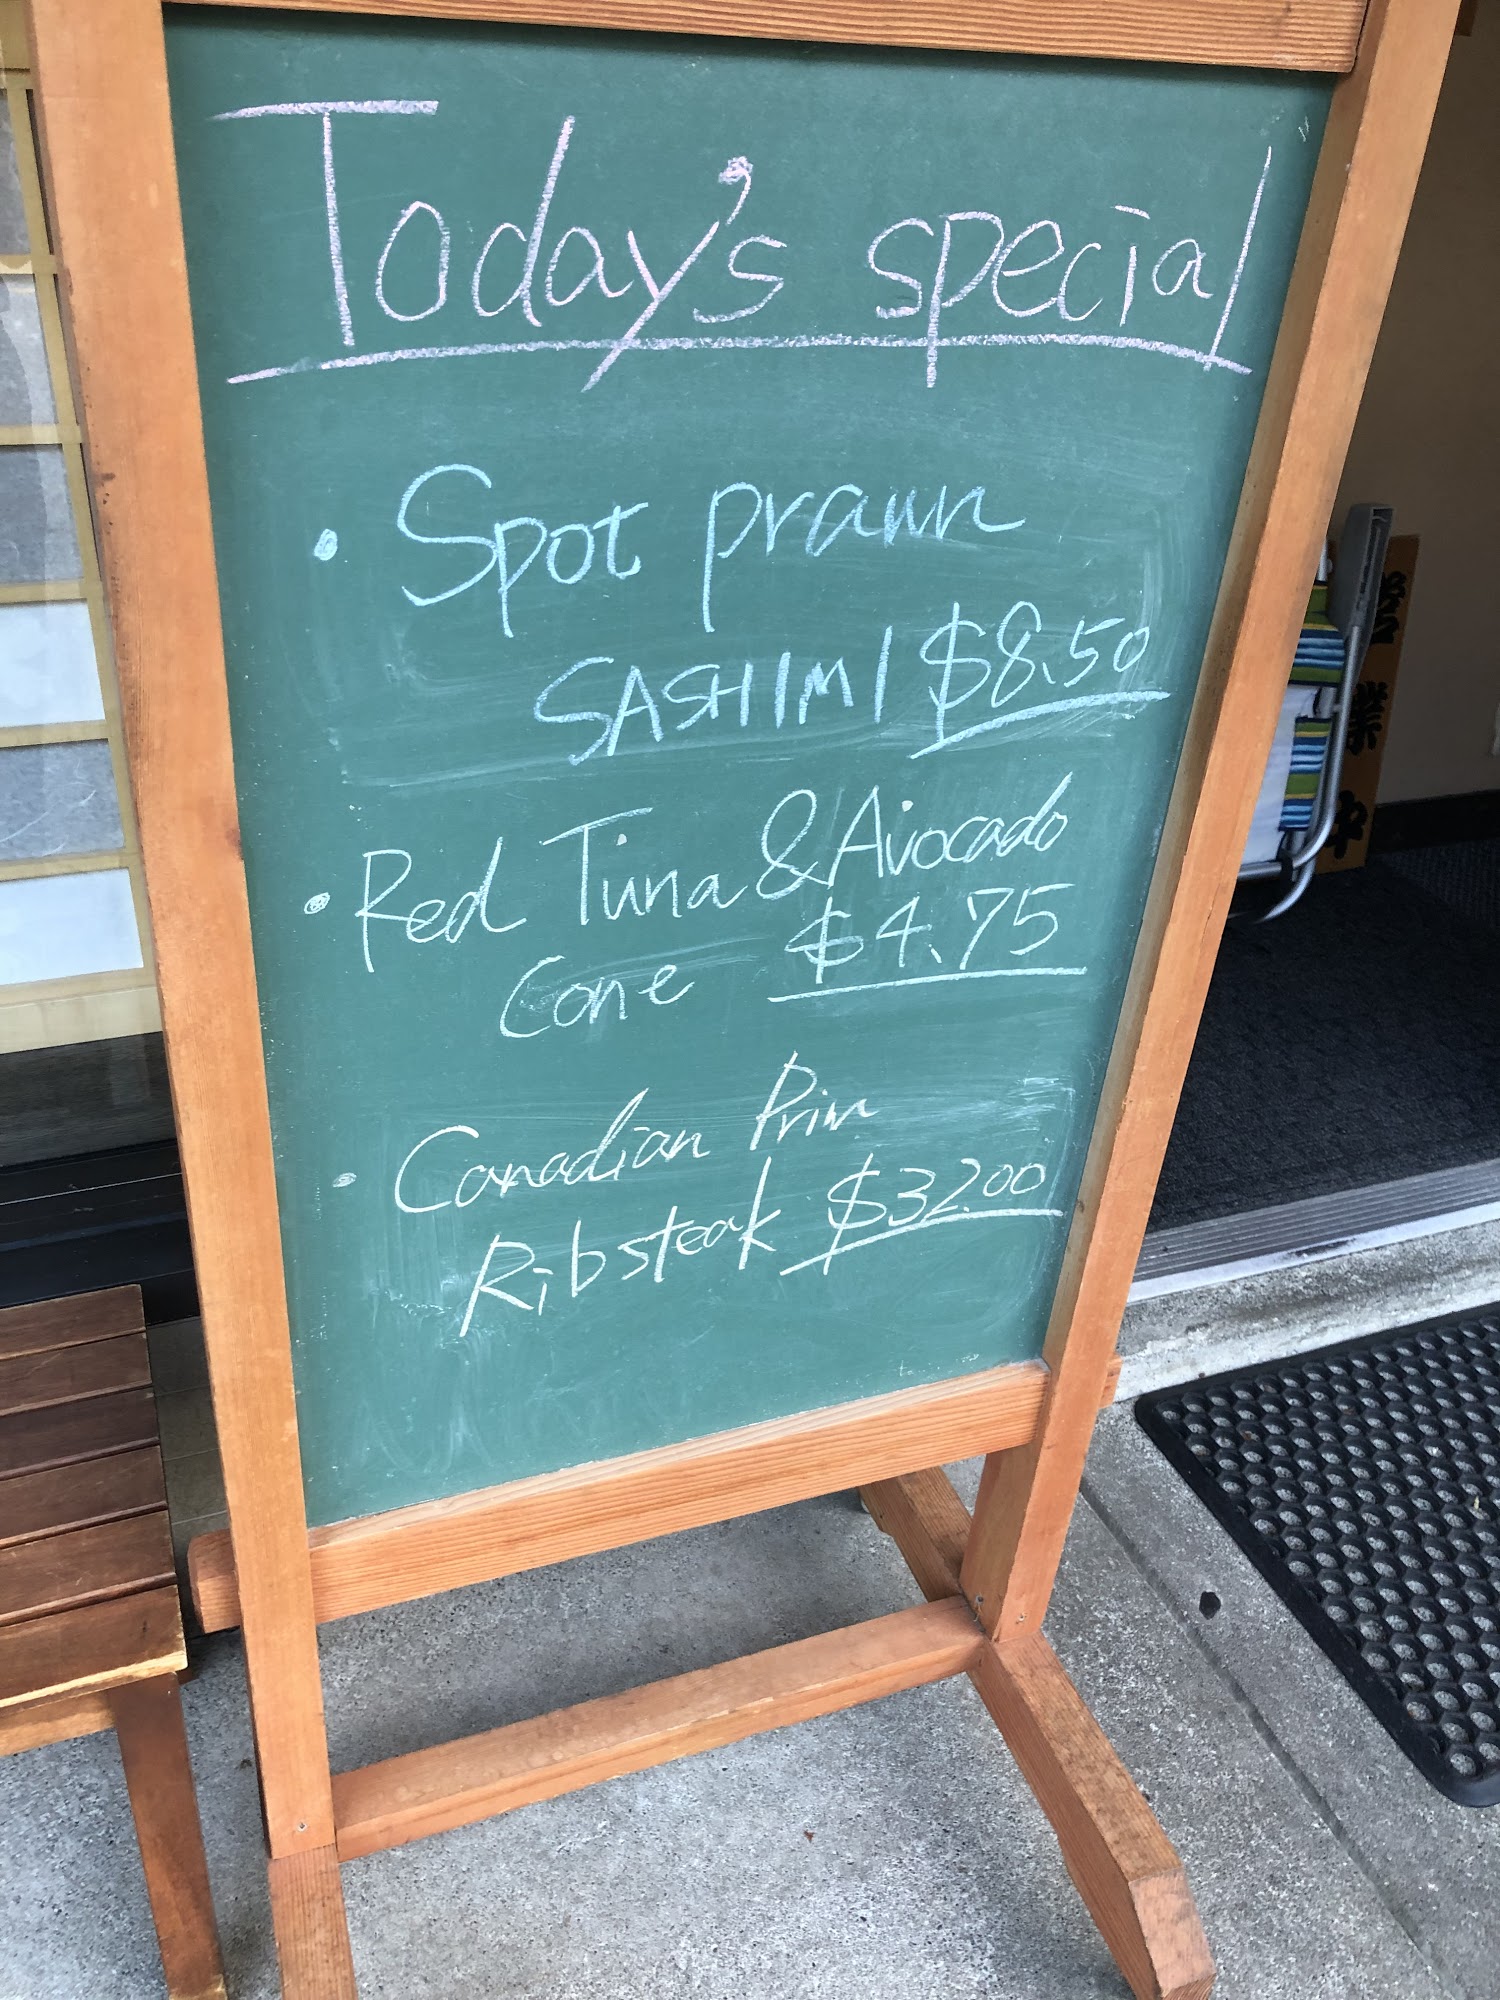 Today's special
• Spot prawn
SASHIMI $8.50
• Red Tuna & Avocado
Cone $4.75
• Canadian Prim
Rib steak $32.00
業